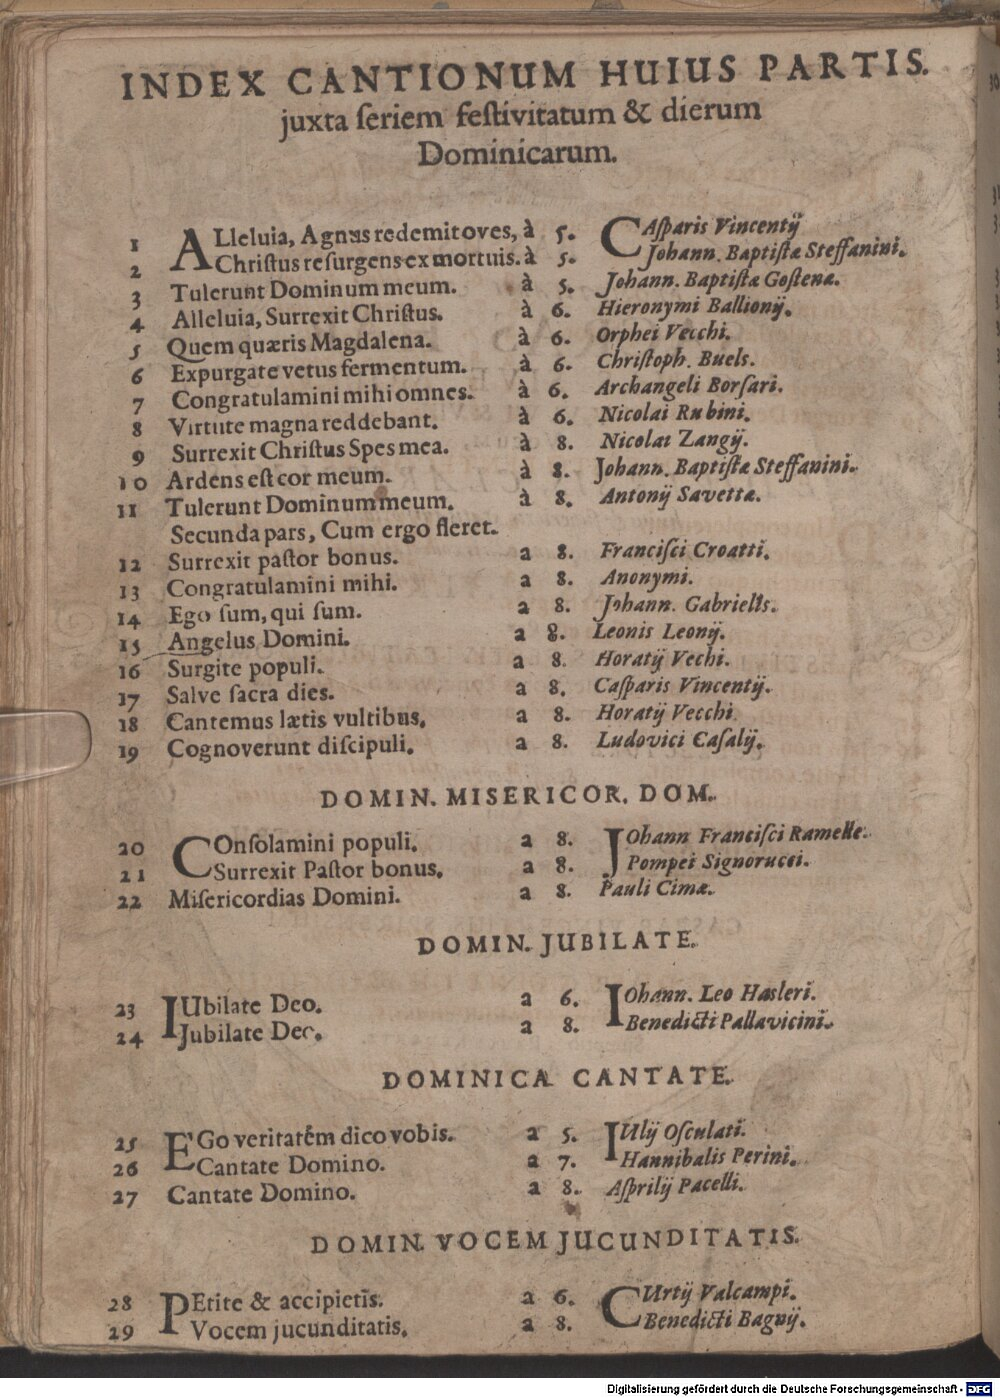 INDEX CANTIONUM HUIUS PARTIS.
juxta ſeriem feſtivitatum & dierum
Dominicarum.
1 ALleluia, Agnus redemit oves, à 5. CAſparis Vincentij
2 Chriſtus reſurgens ex mortuis. à 5. Johann. Baptiſtæ Steffanini.
3 Tulerunt Dominum meum. à 5. Johann. Baptiſtæ Goſtenæ.
4 Alleluia, Surrexit Chriſtus. à 6. Hieronymi Ballionij.
5 Quem quæris Magdalena. à 6. Orphei Vecchi.
6 Expurgate vetus fermentum. à 6. Chriſtoph. Buels.
7 Congratulamini mihi omnes. à 6. Archangeli Borſari.
8 Virtute magna reddebant. à 6. Nicolai Rubini.
9 Surrexit Chriſtus Spes mea. à 8. Nicolai Zangij.
10 Ardens eſt cor meum. à 8. Johann. Baptiſtæ Steffanini.
11 Tulerunt Dominum meum. à 8. Antonij Savettæ.
Secunda pars, Cum ergo fleret.
12 Surrexit paſtor bonus. a 8. Franciſci Croatti.
13 Congratulamini mihi. a 8. Anonymi.
14 Ego ſum, qui ſum. a 8. Johann. Gabrielis.
15 Angelus Domini. a 8. Leonis Leonij.
16 Surgite populi. a 8. Horatij Vechi.
17 Salve ſacra dies. a 8. Caſparis Vincentij.
18 Cantemus lætis vultibus. a 8. Horatij Vecchi
19 Cognoverunt diſcipuli. a 8. Ludovici Caſalij.
DOMIN. MISERICOR. DOM.
20 COnſolamini populi. a 8. JOhann Franciſci Ramelle.
21 Surrexit Paſtor bonus. a 8. Pompei Signorucci.
22 Miſericordias Domini. a 8. Pauli Cimæ.
DOMIN. JUBILATE.
23 IUbilate Deo. a 6. IOhann. Leo Hasleri.
24 Jubilate Deo. a 8. Benedicti Pallavicini.
DOMINICA CANTATE.
25 EGo veritatem dico vobis. a 5. IUlij Oſculati.
26 Cantate Domino. a 7. Hannibalis Perini.
27 Cantate Domino. a 8. Aſprilij Pacelli.
DOMIN. VOCEM JUCUNDITATIS.
28 PEtite & accipietis. a 6. CUrtij Valcampi.
29 Vocem jucunditatis. a 8. Benedicti Bagnij.
Digitalisierung gefördert durch die Deutsche Forschungsgemeinschaft - DFG